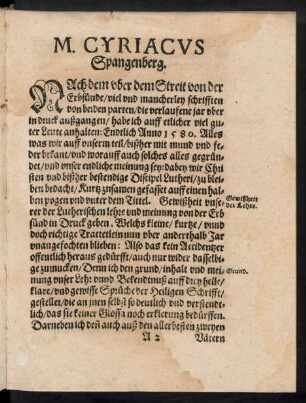 M. CYRIACVS
Spangenberg.
NAch dem vber dem Streit von der
Erbsünde/ viel vnd mancherley schrifften
von beiden parten/ die verlauffene jar vber
in druck außgangen/ habe ich auff etlicher viel gu-
ter Leute anhalten: Endlich Anno 1580. Alles
was wir auff vnserm teil/ bißher mit mund vnd fe-
der bekant/ vnd worauff auch solches alles gegrün-
det/ vnd vnser endliche meinung sey: dabey wir Chri-
sten vnd bißher bestendige Discipel Lutheri/ zu blei-
ben bedacht/ Kurtz zusamen gefasset auff einen hal-
ben pogen vnd vnter dem Tittel. Gewißheit vnse-
rer der Lutherischen lehre vnd meinung von der Erb
sünd in Druck geben. Welchs kleine/ kurtze/ vnnd
doch richtige Tractetlein nun vber anderthalb Jar
vnangefochten blieben: Also das kein Accidentzer
offentlich heraus gedürfft/ auch nur wider dasselbi-
ge zumucken/ Denn ich den grund/ inhalt vnd mei-
nung vnser Lehr vnnd Bekendtnuß auff drey helle/
klare/ vnd gewisse Sprüche der Heiligen Schrifft/
gestellet/ die an jnen selbst so deutlich vnd verstendt-
lich/ das sie keiner Glossa noch erklerung bedürffen.
Darneben ich deñ auch auß den allerbesten zweyen
A 2 Vätern
Gewißheit
der Lehre.
Grund.